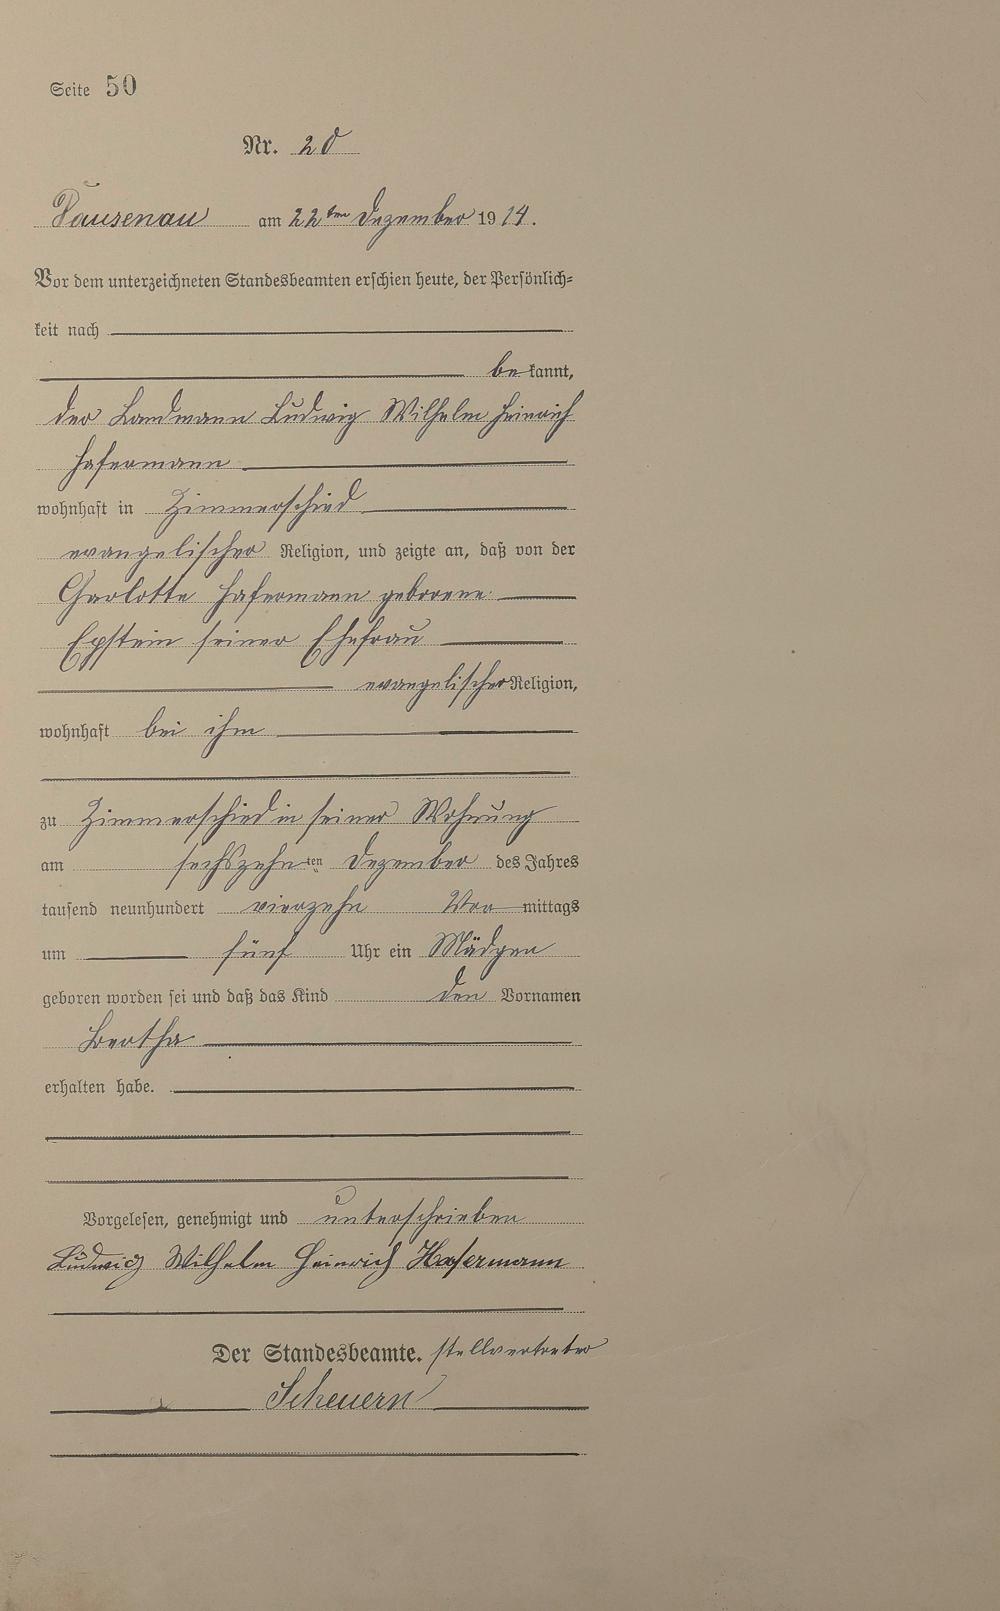 Seite 50
Nr. 20
Dausenau am 22ten Dezember 1914.
Vor dem unterzeichneten Standesbeamten erschien heute, der Persönlich-
keit nach
bekannt,
der Landmann Ludwig Wilhelm Heinrich
Hafermann
wohnhaft in Zimmerschied
evangelischer Religion, und zeigte an, daß von der
Charlotte Hafermann geborene
Epstein seiner Ehefrau
evangelischer Religion,
wohnhaft bei ihm
zu Zimmerschied in seiner Wohnung
am sechszehnten Dezember des Jahres
tausend neunhundert vierzehn Vormittags
um fünf Uhr ein Mädgen
geboren worden sei und daß das Kind den Vornamen
Bertha
erhalten habe.
Vorgelesen, genehmigt und unterschrieben
Ludwig Wilhelm Heinrich Hafermann
Der Standesbeamte. stellvertreter
Scheuern